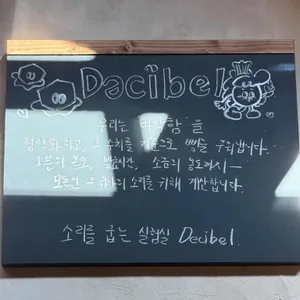 Decibel
우리는 바삭함을
정량화하고, 그 수치를 기준으로 빵을 구워냅니다...
오븐의 온도, 발효시간, 소금의 농도까지—
모든건 그 하나의 소리를 위해 계산합니다.
소리를 굽는 실험실 Decibel.